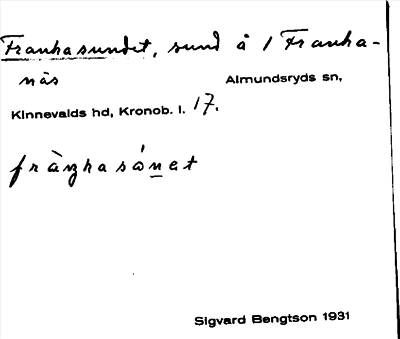 Frankasundet, sund å 1 Franka-
näs Almundsryds sn,
Kinnevalds hd, Kronob. l. 17.
fràŋkasónet
Sigvard Bengtson 1931